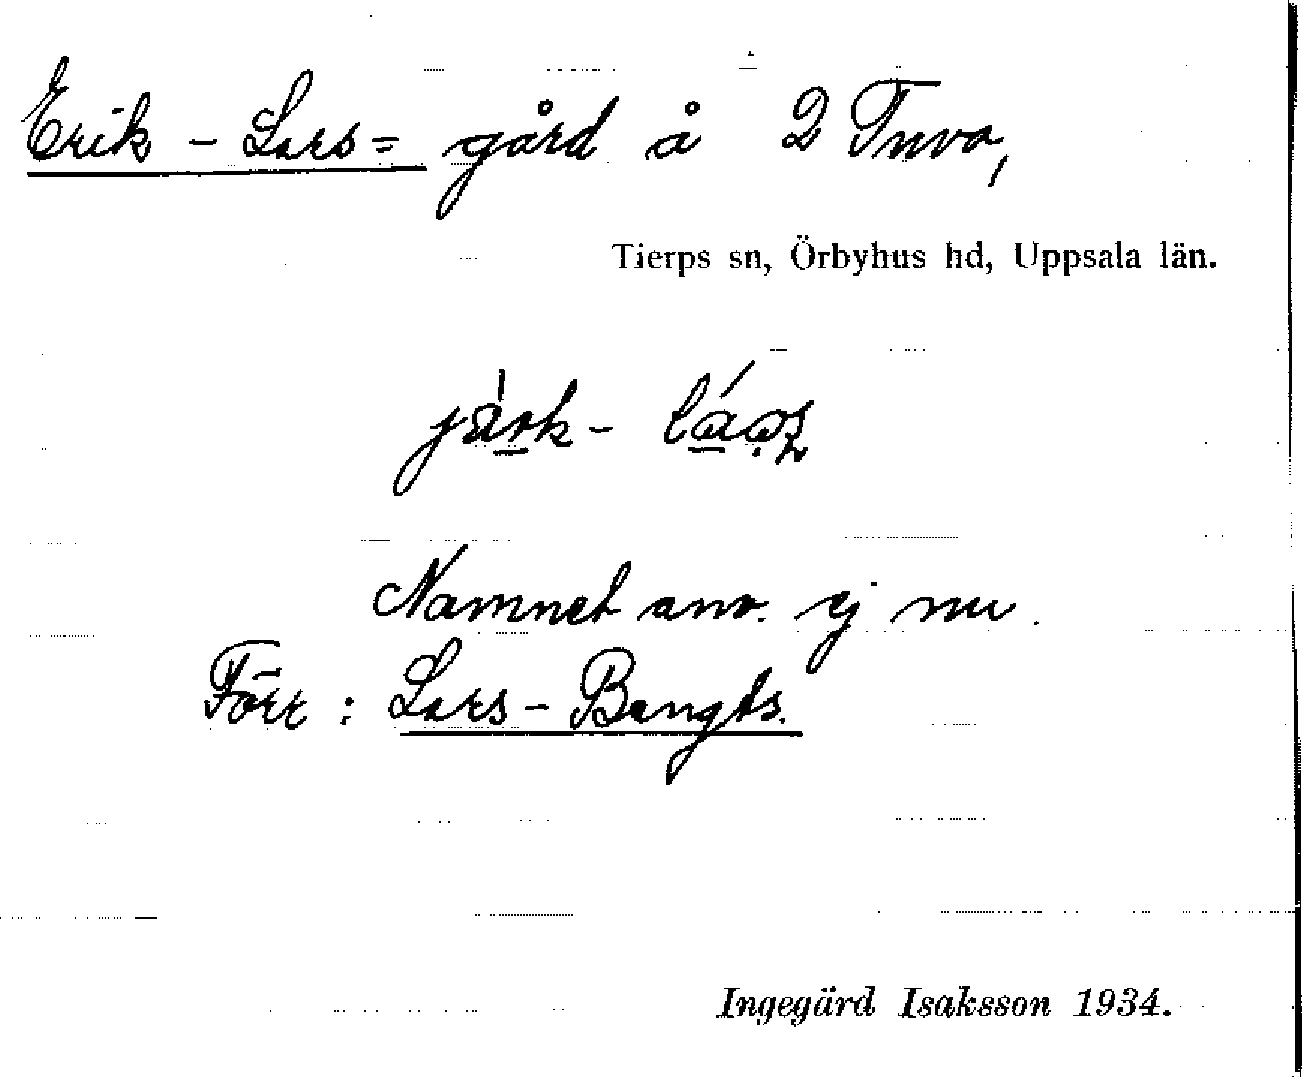 Erik - Lars = gård å 2 Tuvo,
Tierps sn, Örbyhus hd, Uppsala län.
Namnet anv. ej nu.
Förr : Lars - Bengts.
Ingegärd Isaksson 1934.